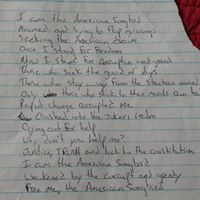 I am the American Songbird
Maimed and trying to flap my wings
Seeking the American dream
Once I Stood For Freedom
Now I Stand For Corruption and greed
Those who seek the good ol' days
Those who stay away From the
Only those who stick to their meds can
Rapid change corrupted me
Crashed into the
Crying out For help
Why don't you help me?
Justice, TRUTH and back to the Constitution
I am the American Songbird
Weakened by the corrupt and greedy
Free Me, the American Songbird